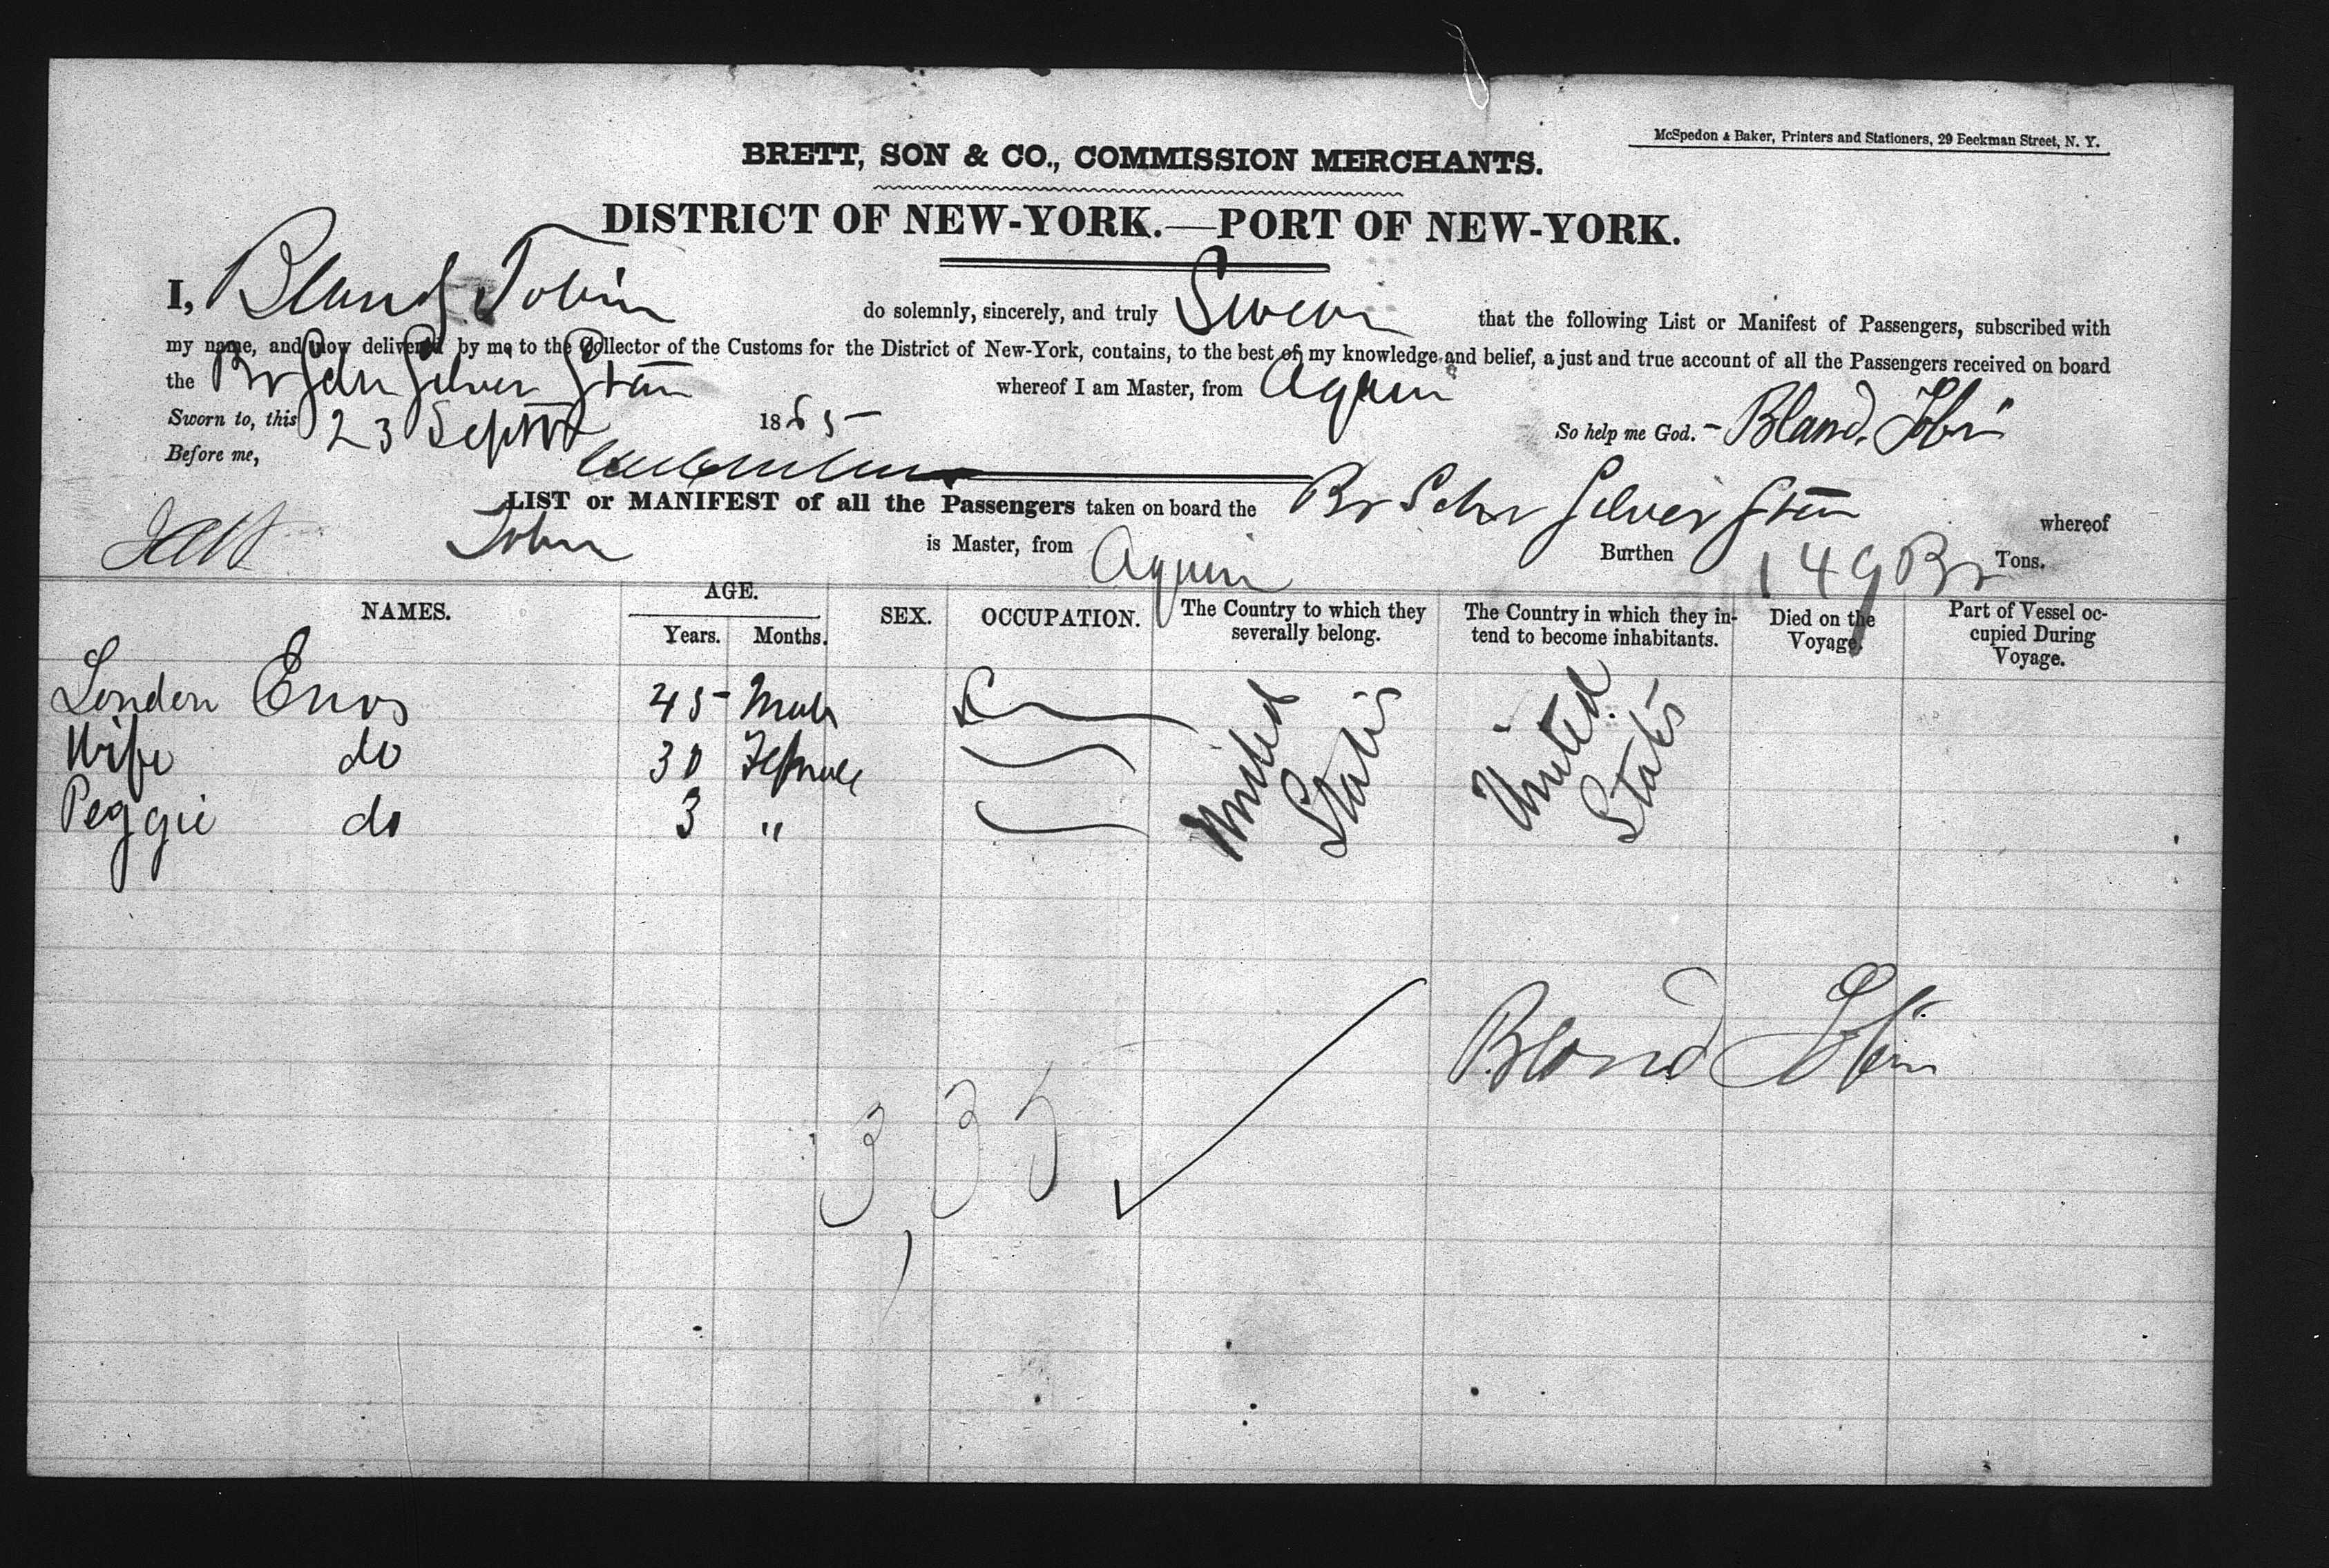 McSpedon & Baker, Printers and Stationers, 29 Beekman Street, N. Y.
BRETT, SON & CO., COMMISSION MERCHANTS.
DISTRICT OF NEW-YORK.—PORT OF NEW-YORK.
I, Bland Tobin do solemnly, sincerely, and truly Swear that the following List or Manifest of Passengers, subscribed with
my name, and now delivered by me to the Collector of the Customs for the District of New-York, contains, to the best of my knowledge and belief, a just and true account of all the Passengers received on board
the Br Schr Silver Star whereof I am Master, from Aquin
Sworn to, this 23 Sept 1865 So help me God. Bland Tobin
Before me,
LIST or MANIFEST of all the Passengers taken on board the Br Schr Silver Star whereof
Tobin is Master, from Aquin Burthen 149 Br Tons.
NAMES. AGE. Years. Months. SEX. OCCUPATION. The Country to which they severally belong. The Country in which they intend to become inhabitants. Died on the Voyage. Part of Vessel occupied During Voyage.
London Enos 45 Male United States United States
Wife do 30 Female
Peggie do 3 "
Bland Tobin
335